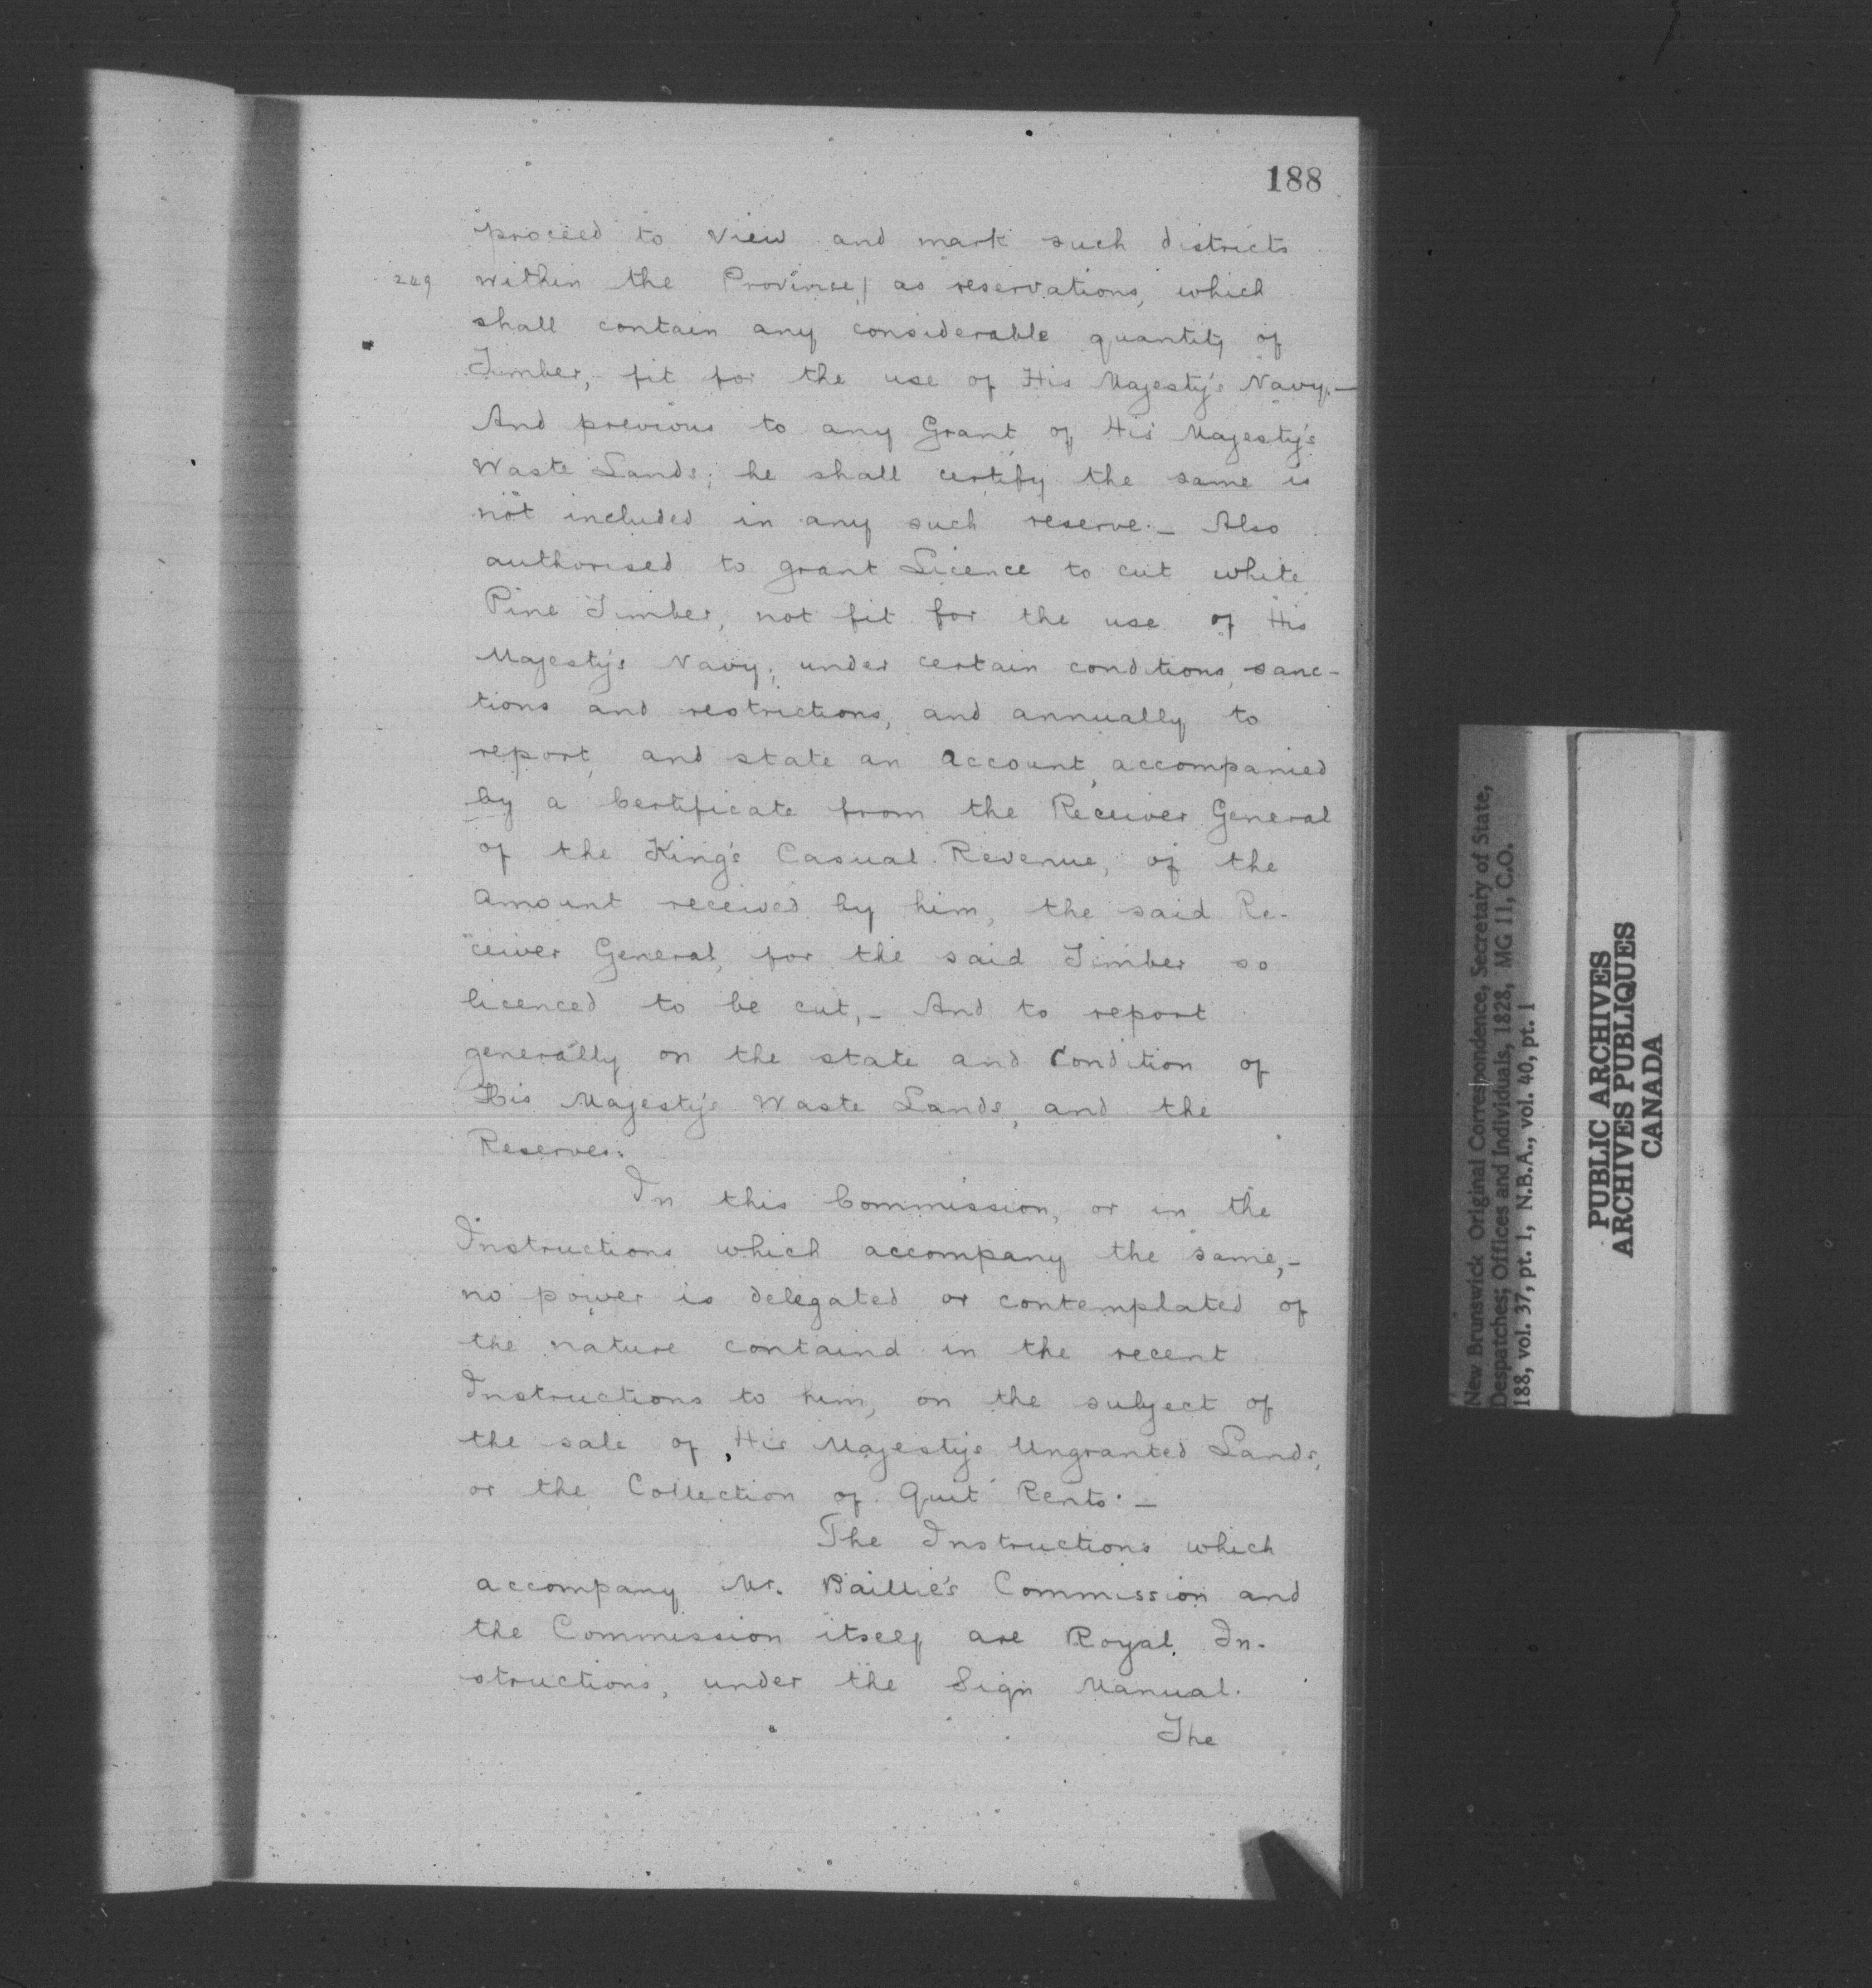 188
proceed to view and mark such districts
249 within the Province/ as reservations, which
shall contain any considerable quantity of
Timber, fit for the use of His Majesty's Navy.—
And previous to any Grant of His Majesty's
Waste Lands; he shall certify the same is
not included in any such reserve.— Also
authorised to grant Licence to cut white
Pine Timber, not fit for the use of His
Majesty's Navy; under certain conditions, sanc-
tions and restrictions, and annually to
report, and state an Account, accompanied
by a Certificate from the Receiver General
of the King's Casual Revenue, of the
amount received by him, the said Re-
"ceiver General, for the said Timber so
licenced to be cut,— And to report
generally on the state and Condition of
His Majesty's Waste Lands, and the
Reserves.
In this Commission, or in the
Instructions which accompany the same,—
no power is delegated or contemplated of
the nature containd in the recent
Instructions to him, on the subject of
the sale of His Majesty's Ungranted Lands,
or the Collection of Quit Rents.—
The Instructions which
accompany Mr. Baillie's Commission and
the Commission itself are Royal In-
structions, under the Sign Manual.
The
New Brunswick Original Correspondence, Secretary of State,
Despatches; Offices and Individuals, 1828, MG 11, C.O.
188, vol. 37, pt. 1, N.B.A., vol. 40, pt. 1
PUBLIC ARCHIVES
ARCHIVES PUBLIQUES
CANADA